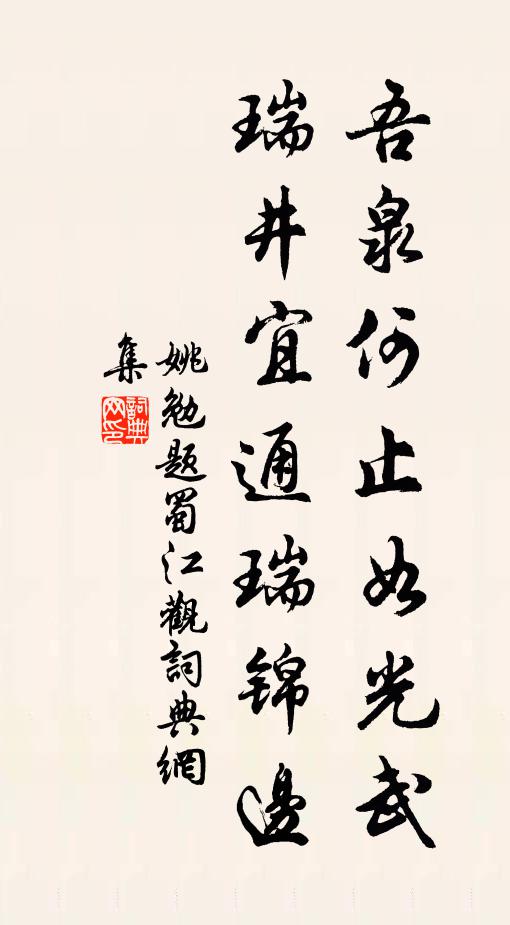 吾泉何止如光武
瑞井宜通瑞錦邊
姚勉題蜀江觀詞典網
集
詞典
网印